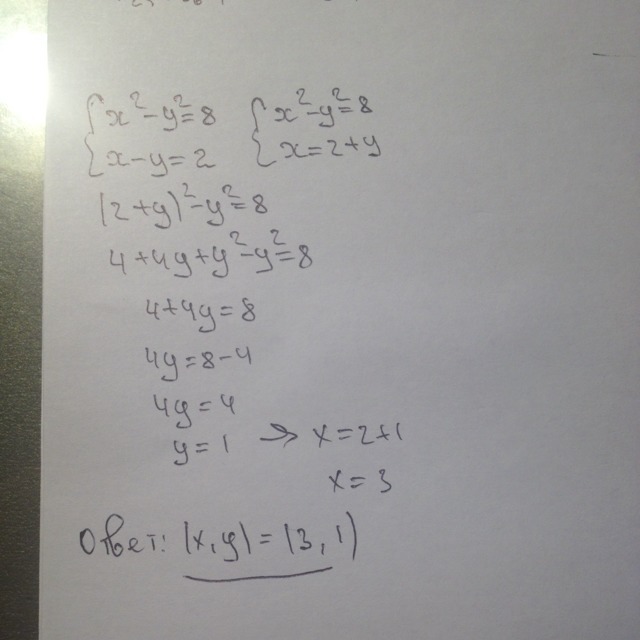 {x²-y²=8 {x²-y²=8
{x-y=2 {x=2+y
(2+y)²-y²=8
4+4y+y²-y²=8
4+4y=8
4y=8-4
4y=4
y=1 → x=2+1
x=3
Ответ: (x,y)=(3,1)